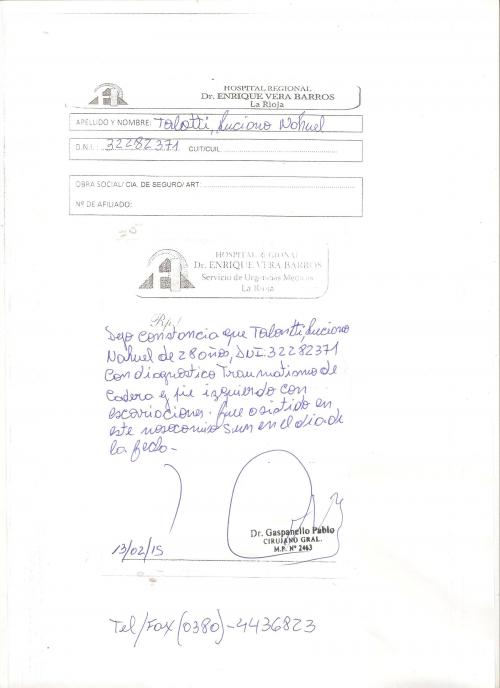 HOSPITAL REGIONAL
Dr. ENRIQUE VERA BARROS
La Rioja
APELLIDO Y NOMBRE: Talotti, Luciano Nahuel
D.N.I.: 32282371 CUIT/CUIL:
OBRA SOCIAL/ CIA. DE SEGURO/ ART:
Nº DE AFILIADO:
HOSPITAL REGIONAL
Dr. ENRIQUE VERA BARROS
Servicio de Urgencias Medicas
La Rioja
Rp/
Dejo constancia que Talotti, Luciano
Nahuel de 28 años, DNI 32282371
Con diagnóstico Traumatismo de
Cadera y pie izquierdo con
escoriaciones. fue asistido en
este nosocomio en el dia de
la fecha-
13/02/15
Dr. Gaspanello Pablo
CIRUJANO GRAL.
M.P. Nº 2463
Tel/Fax (0380)-4436823